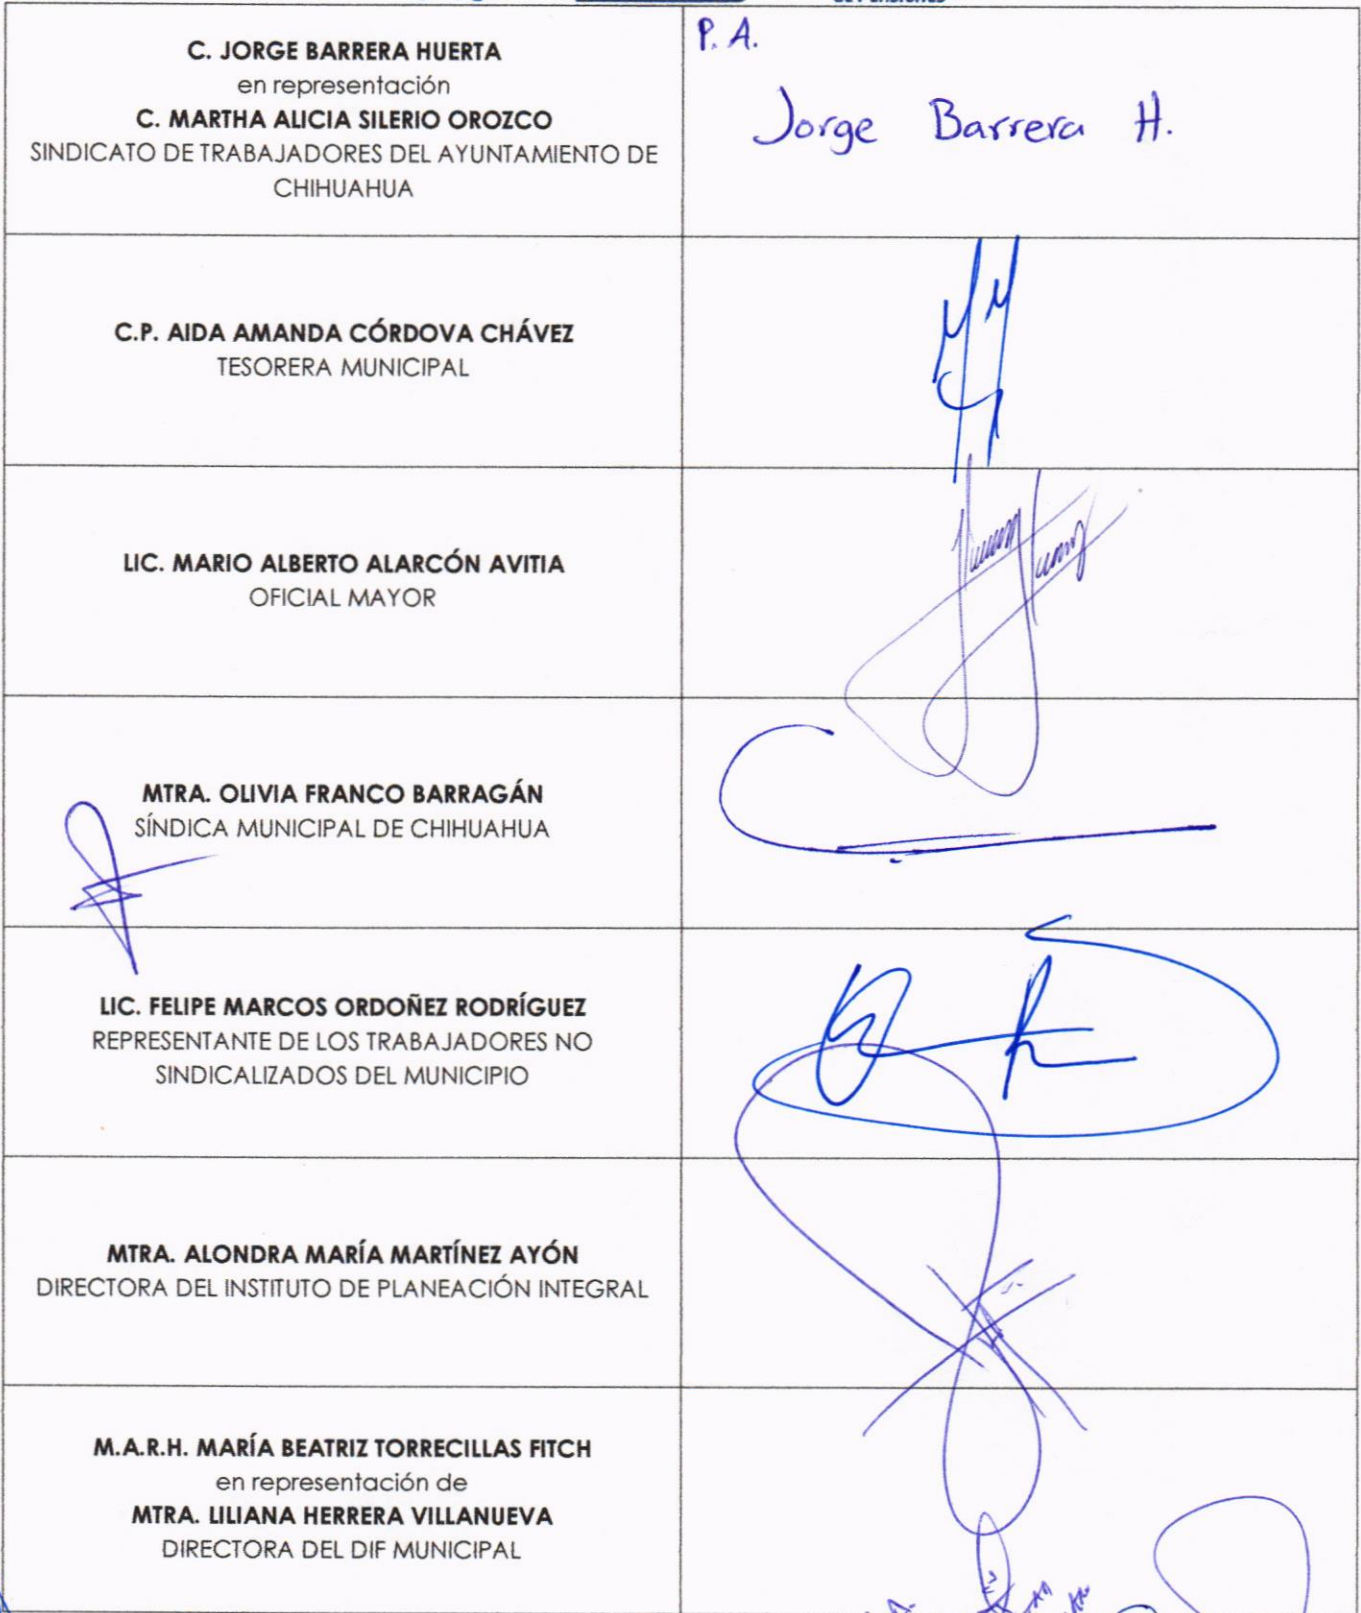 C. JORGE BARRERA HUERTA
en representación
C. MARTHA ALICIA SILERIO OROZCO
SINDICATO DE TRABAJADORES DEL AYUNTAMIENTO DE
CHIHUAHUA
P. A.
Jorge Barrera H.
C.P. AIDA AMANDA CÓRDOVA CHÁVEZ
TESORERA MUNICIPAL
LIC. MARIO ALBERTO ALARCÓN AVITIA
OFICIAL MAYOR
MTRA. OLIVIA FRANCO BARRAGÁN
SÍNDICA MUNICIPAL DE CHIHUAHUA
LIC. FELIPE MARCOS ORDOÑEZ RODRÍGUEZ
REPRESENTANTE DE LOS TRABAJADORES NO
SINDICALIZADOS DEL MUNICIPIO
MTRA. ALONDRA MARÍA MARTÍNEZ AYÓN
DIRECTORA DEL INSTITUTO DE PLANEACIÓN INTEGRAL
M.A.R.H. MARÍA BEATRIZ TORRECILLAS FITCH
en representación de
MTRA. LILIANA HERRERA VILLANUEVA
DIRECTORA DEL DIF MUNICIPAL